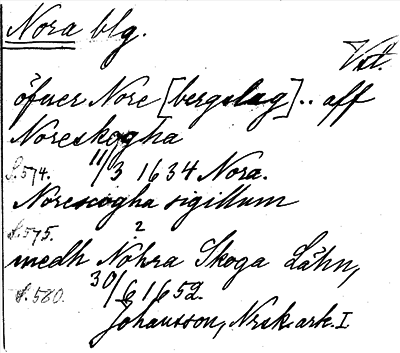 Nora blg.
Vstl.
öfuer Nore [bergslag].. aff
Noreskogha
S. 574. 11/3 1634 Nora.
Norescogha sigillum
S. 575. 2
medh Nohra Skoga Lähn,
S. 580. 30/6 1652.
Johansson, Nrsk. ark. I